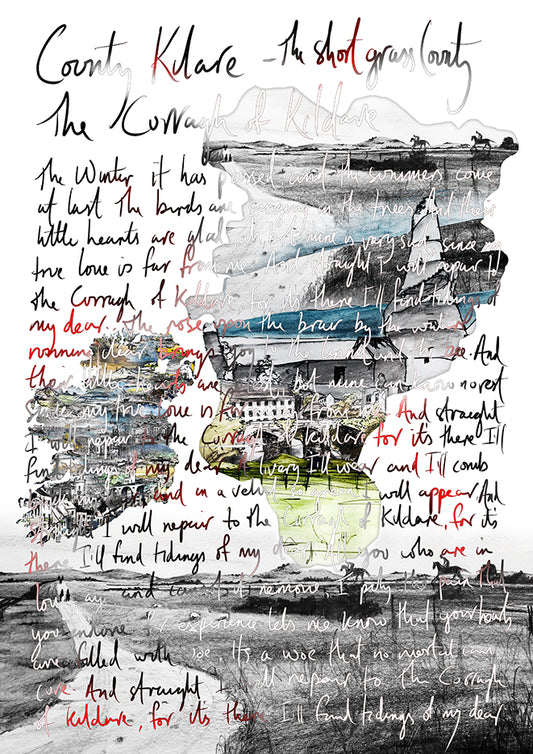 County Kildare - The short grass County
The Curragh of Kildare
The Winter it has passed and the summers come
at last The birds are singing in the trees And their
little hearts are glad oh but mine is very sad since my
true love is far from me And straight I will repair to
the Curragh of Kildare for its there I'll find tidings of
my dear. The rose upon the briar by the water
running clear brings joy to the And
their little hearts are but mine can know no rest
since my true love is far from me. And straight
I will repair to the Curragh of Kildare for its there I'll
find tidings of my dear A livery I'll wear and I'll comb
and in a velvet I will appear And
straight I will repair to the Curragh of Kildare, for its
there I'll find tidings of my dear All you who are in
love aye and cannot it remove I pity the pain that
you endure For experience lets me know that your hearts
are filled with woe Its a woe that no mortal can
cure And straight I will repair to The Curragh
of Kildare, for its there I'll find tidings of my dear.